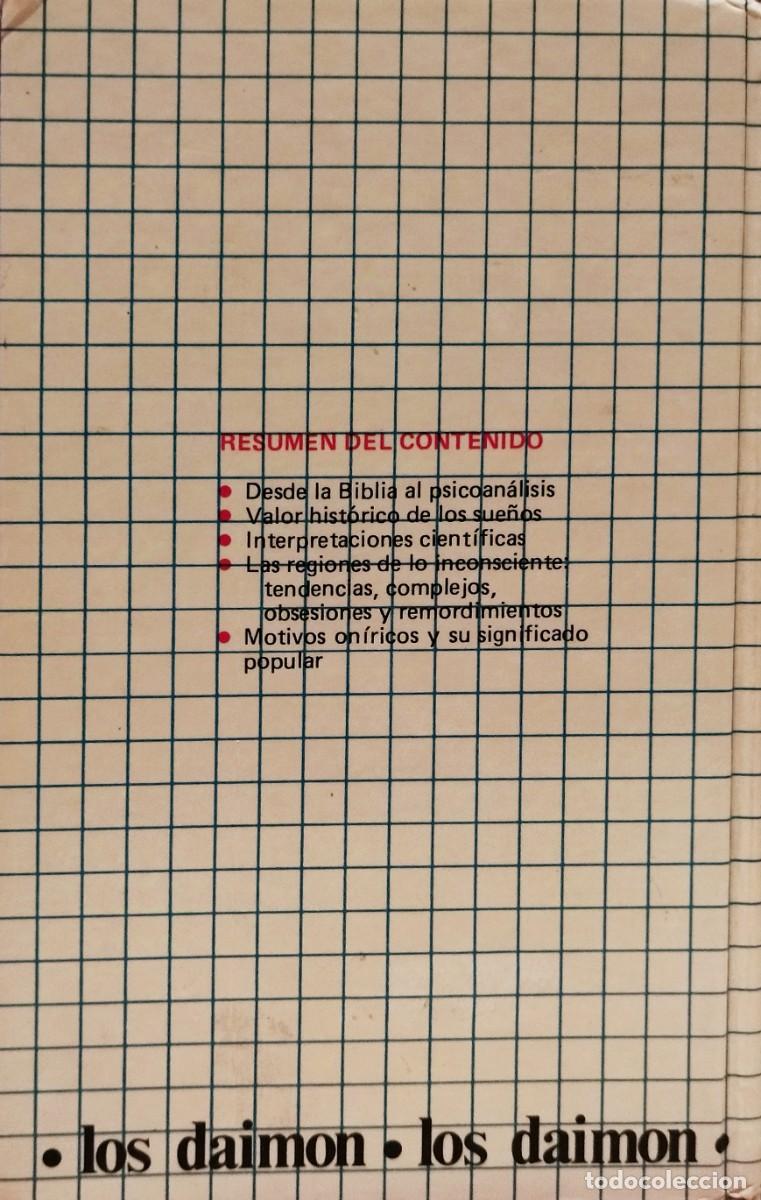 RESUMEN DEL CONTENIDO
• Desde la Biblia al psicoanálisis
• Valor histórico de los sueños
• Interpretaciones científicas
• Las regiones de lo inconsciente:
tendencias, complejos,
obsesiones y remordimientos
• Motivos oníricos y su significado
popular
• los daimon • los daimon •
todocoleccion